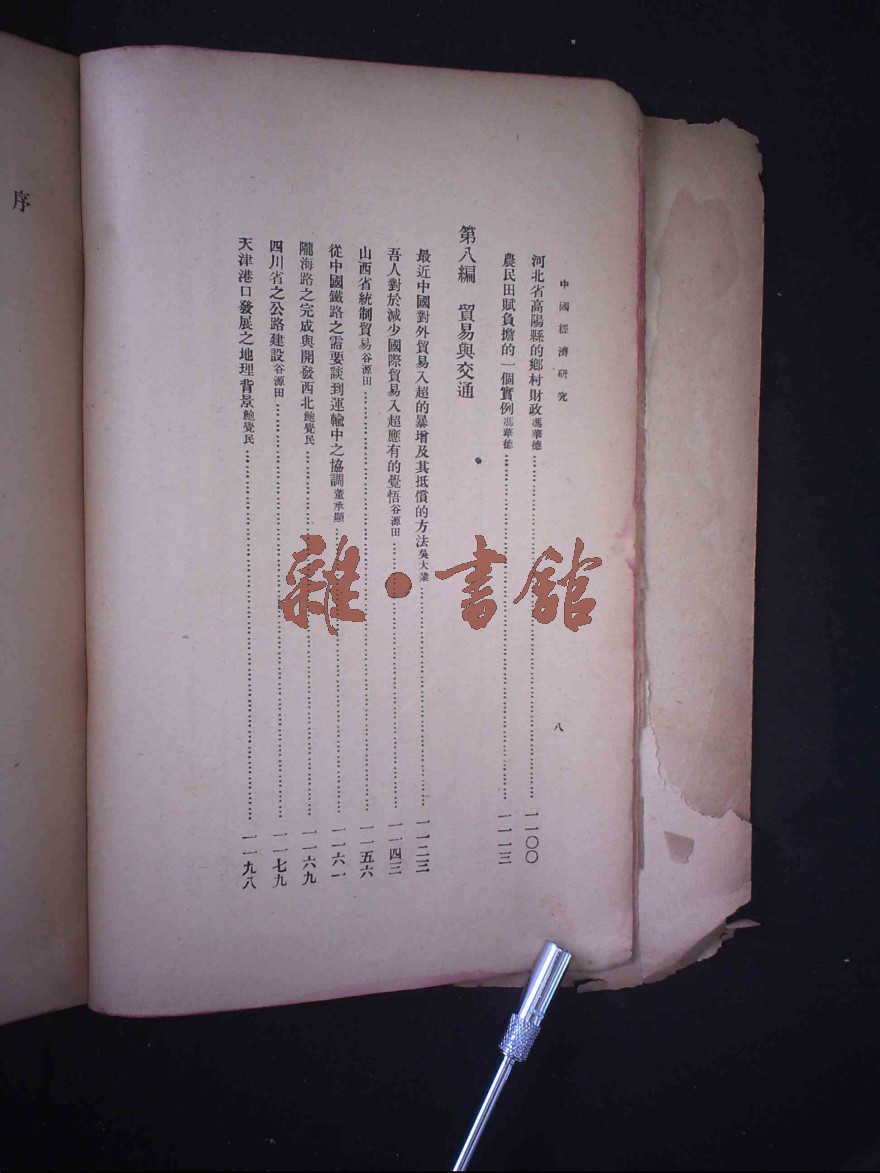 中國經濟研究
八
河北省高陽縣的鄉村財政馮華德……一一〇〇
農民田賦負擔的一個實例馮華德……一一一三
第八編 貿易與交通
最近中國對外貿易入超的暴增及其抵償的方法吳大業……一一二三
吾人對於減少國際貿易入超應有的覺悟谷源田……一一四三
山西省統制貿易谷源田……一一五六
從中國鐵路之需要談到運輸中之協調董承顯……一一六一
隴海路之完成與開發西北鮑覺民……一一六九
四川省之公路建設谷源田……一一七九
天津港口發展之地理背景鮑覺民……一一九八
序
雜·書館